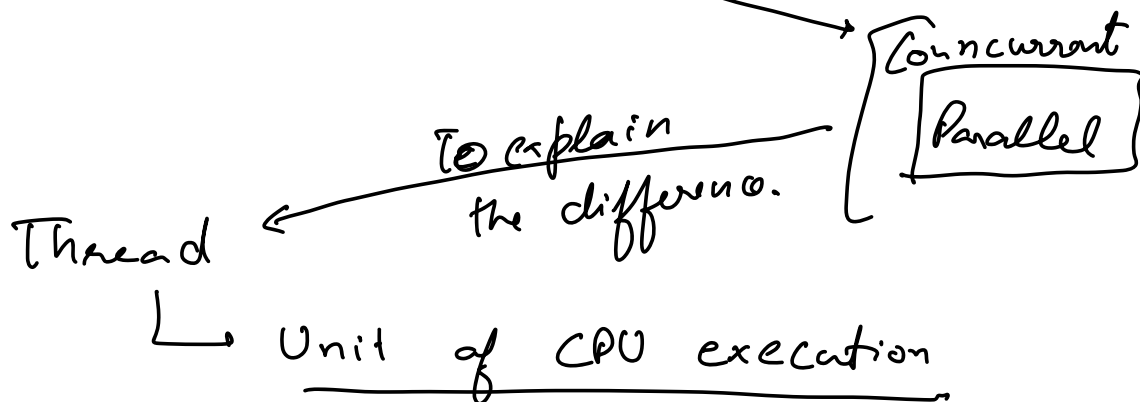 Councurrant
Parallel
To explain
the difference.
Thread
Unit of CPU execation